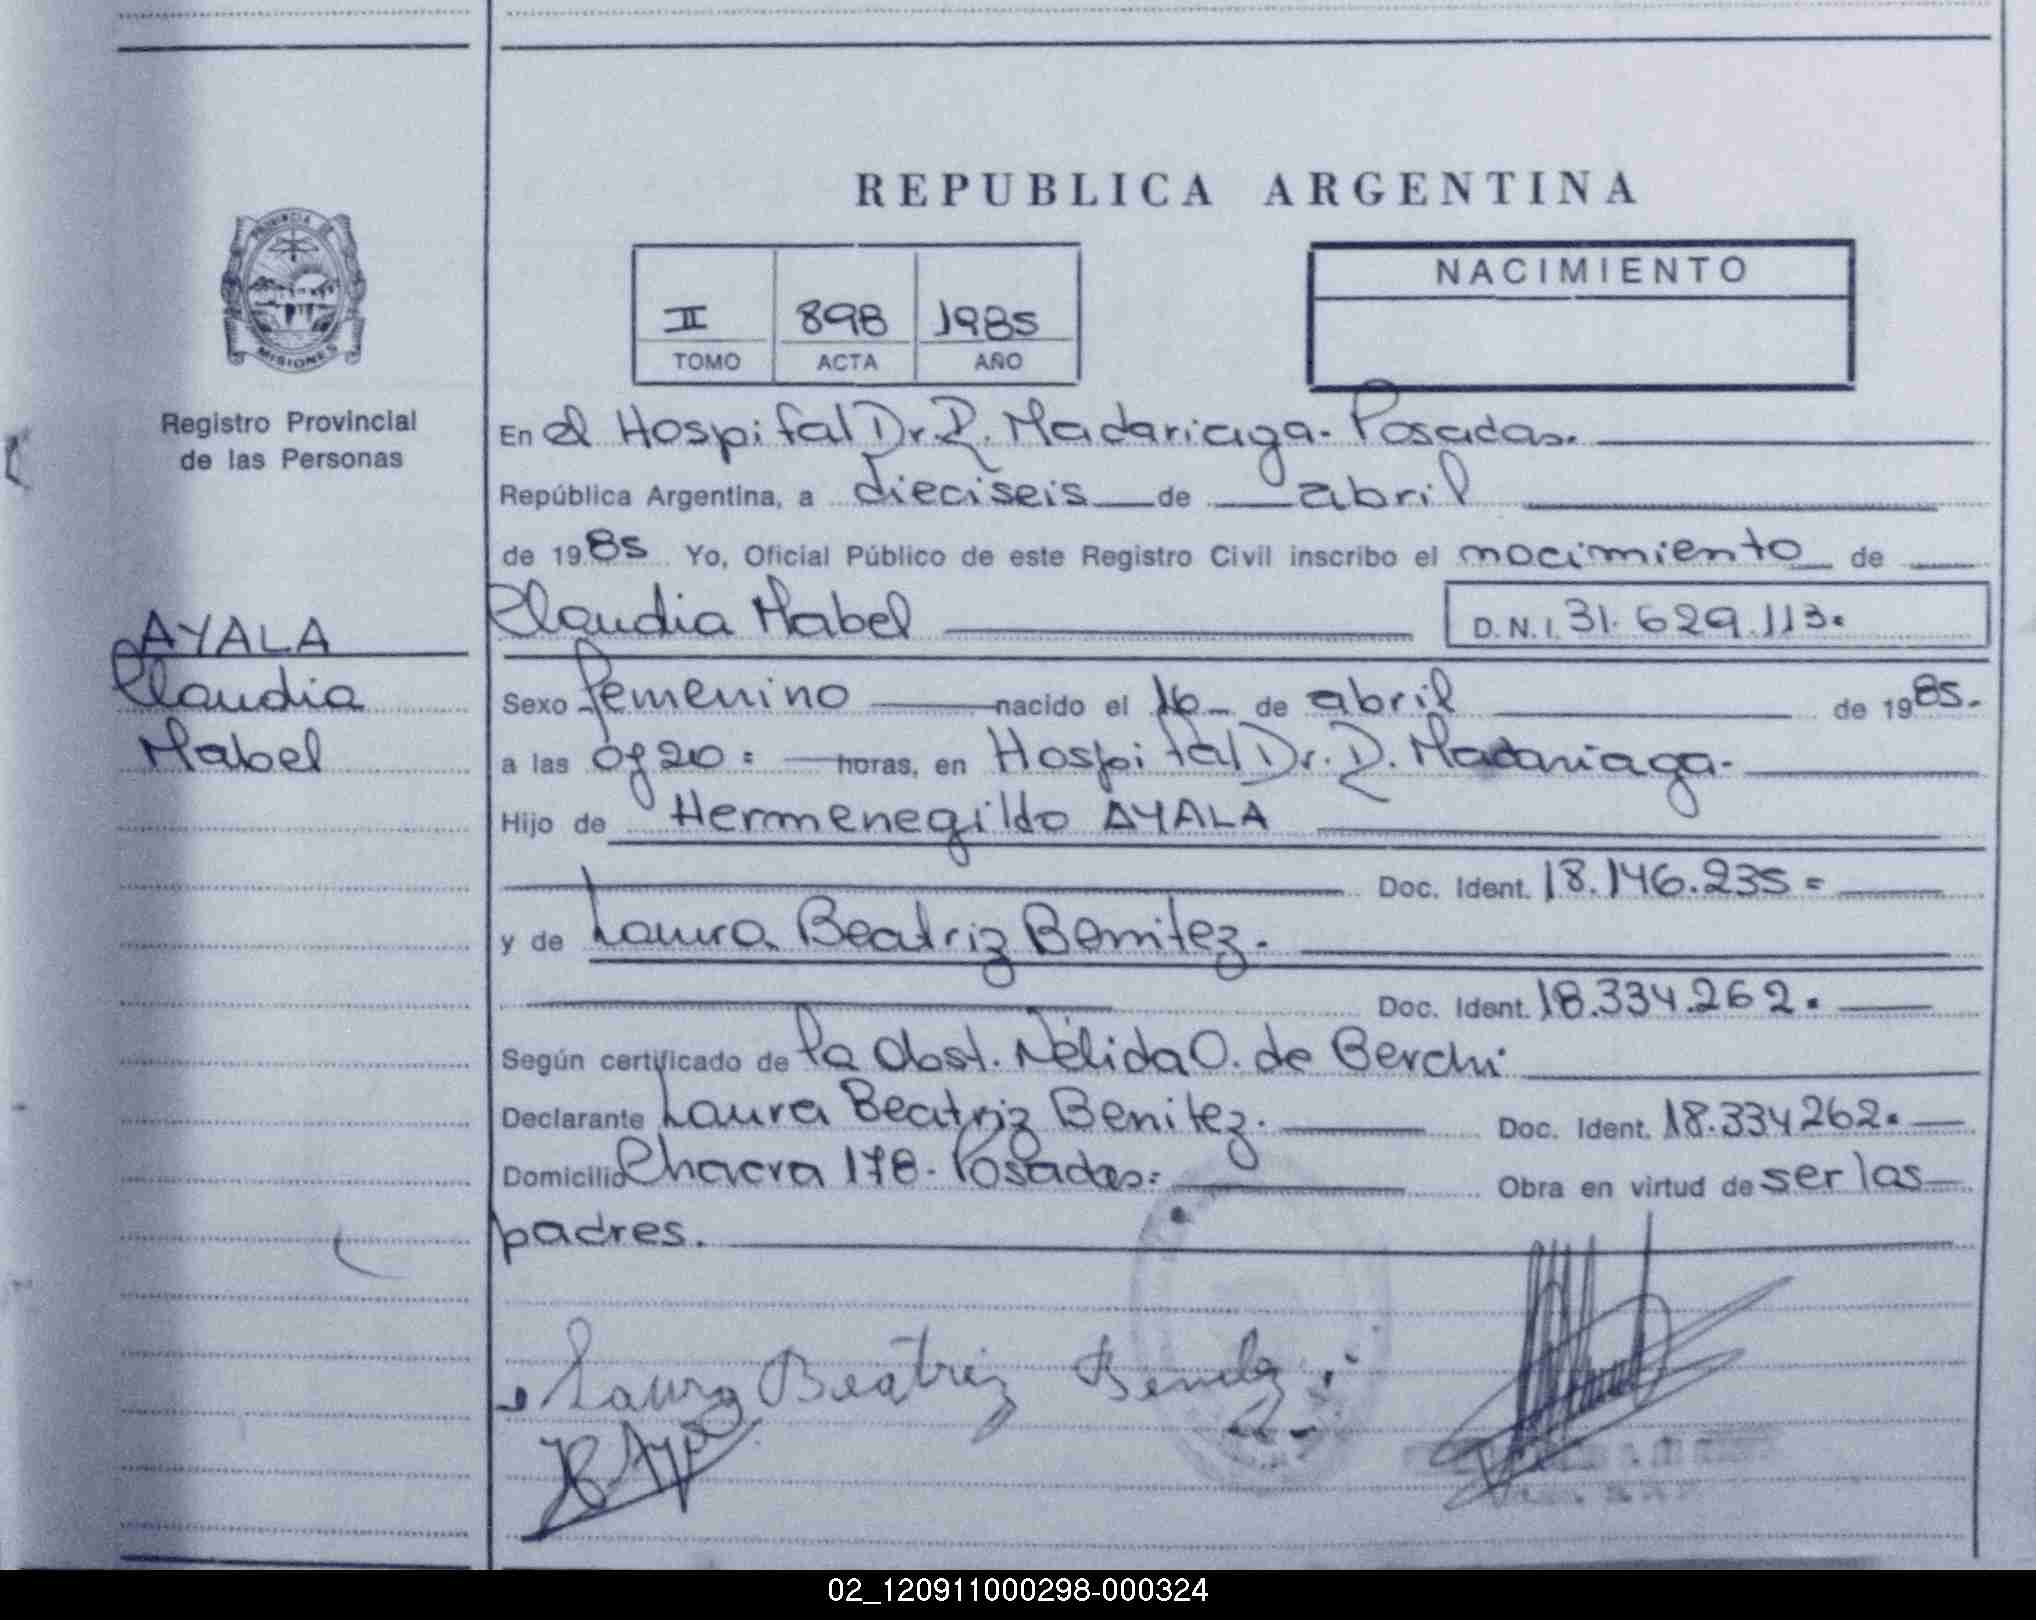 REPUBLICA ARGENTINA
PROVINCIA DE
MISIONES
Registro Provincial
de las Personas
II 898 1985
TOMO ACTA AÑO
NACIMIENTO
En el Hospital Dr. R. Madariaga - Posadas.
República Argentina, a dieciseis de abril
de 1985 Yo, Oficial Público de este Registro Civil inscribo el nacimiento de
AYALA
Claudia
Mabel
Claudia Mabel D.N.I. 31.629.113.
Sexo femenino nacido el 16 de abril de 1985.
a las 0920= horas, en Hospital Dr. R. Madariaga.
Hijo de Hermenegildo AYALA
Doc. Ident. 18.146.235=
y de Laura Beatriz Benitez.
Doc. Ident. 18.334.262.
Según certificado de la Obst. Nélida O. de Berchi
Declarante Laura Beatriz Benitez. Doc. Ident. 18.334262.
Domicilio Chacra 178 - Posadas= Obra en virtud de ser los
padres.
Laura Beatriz Benitez
02_120911000298-000324